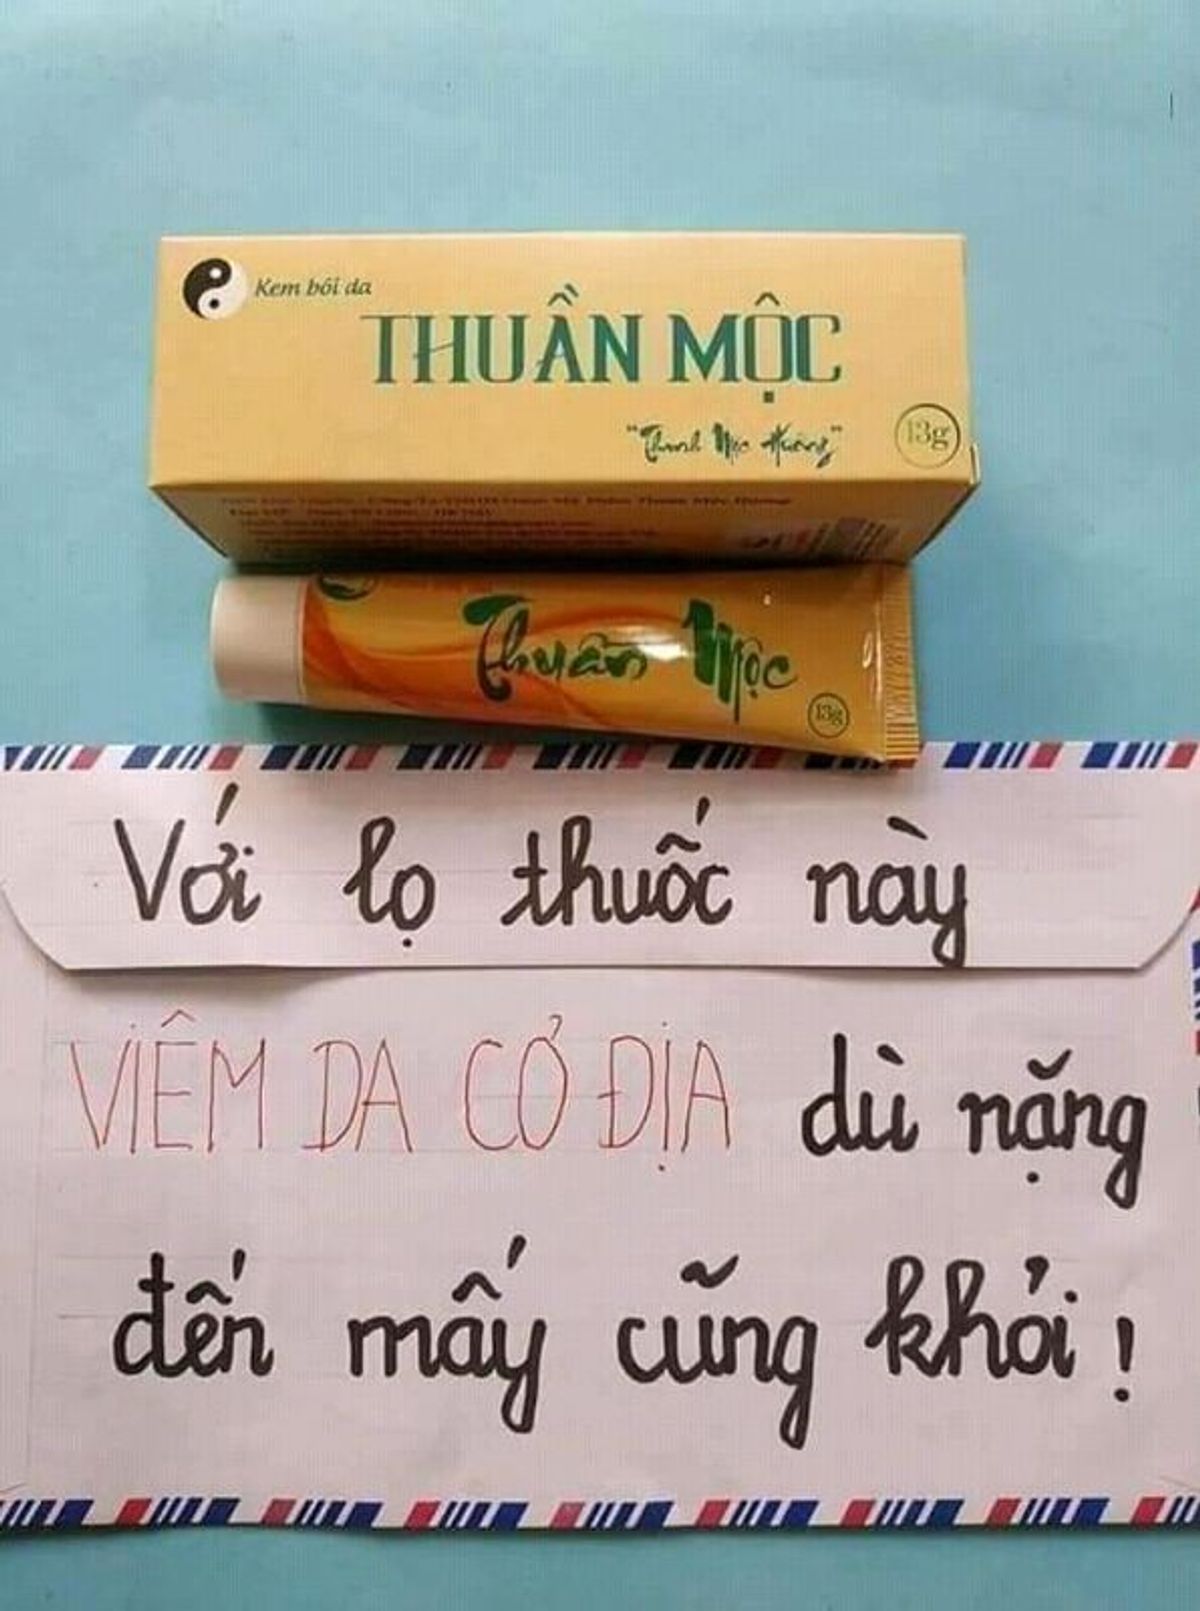 Kem bôi da
THUẦN MỘC
"Thanh Mộc Hương"
13g
Thuần Mộc
13g
Với lọ thuốc này
VIÊM DA CỞ ĐỊA dù nặng
đến mấy cũng khỏi!